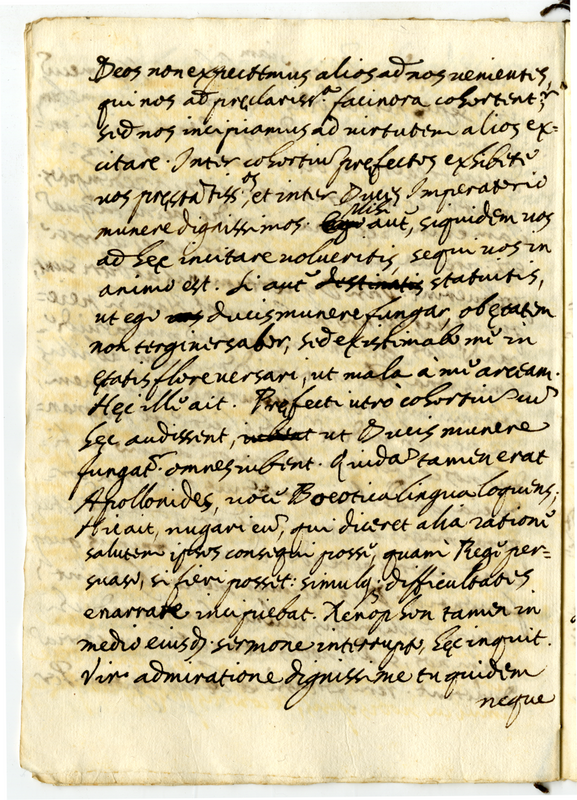 Deos non expectemus alios ad nos venientes,
qui nos ad pręclariss.ᵃ facinora cohortent.ʳ
sed nos incipiamus ad virtutem alios ex=
citare. Inter cohortiũ pręfectos exhibete
vos pręstãtiss.ᵒˢ, et inter Duces Imperatorio
munere dignissimos. autẽ, siquidem vos
ad hęc incitare volueritis, sequi vos in
animo est. Si autẽ destinatis statuitis,
ut ego vos ducis munere fungar, ob ętatem
non tergiversabor, sed existimabo mẽ in
ętatis flore versari, ut mala à mẽ arceam.
Hęc illẽ ait. Pręfecti verò cohortiũ cũ
hęc audissent, iubent ut Ducis munere
fungat.ʳ omnes iubent. Quidã tamen erat
Apollonides, vocẽ Boeotica lingua loquens;
Hic ait, nugari eũ, qui diceret alia rationẽ
salutem ipsos consequi possẽ, quam Regẽ per=
suaso, si fieri posset: simulq; difficultates
enarrare incipiebat. Xenophon tamen in
medio eiusd. sermone interrupto, hęc inquit.
Vir admiratione dignissime tu quidem
neque